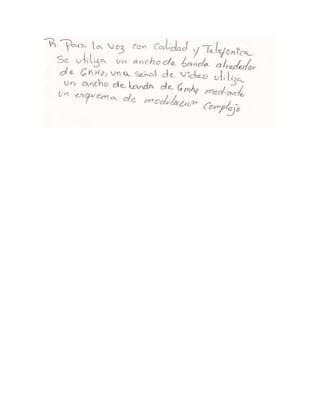 R. Para la voz con calidad y Telefonica
Se utiliza un ancho de banda alrededor
de 6KHz, una señal de video utiliza
un ancho de banda de 6mhz mediante
un esquema de modulacion complejo